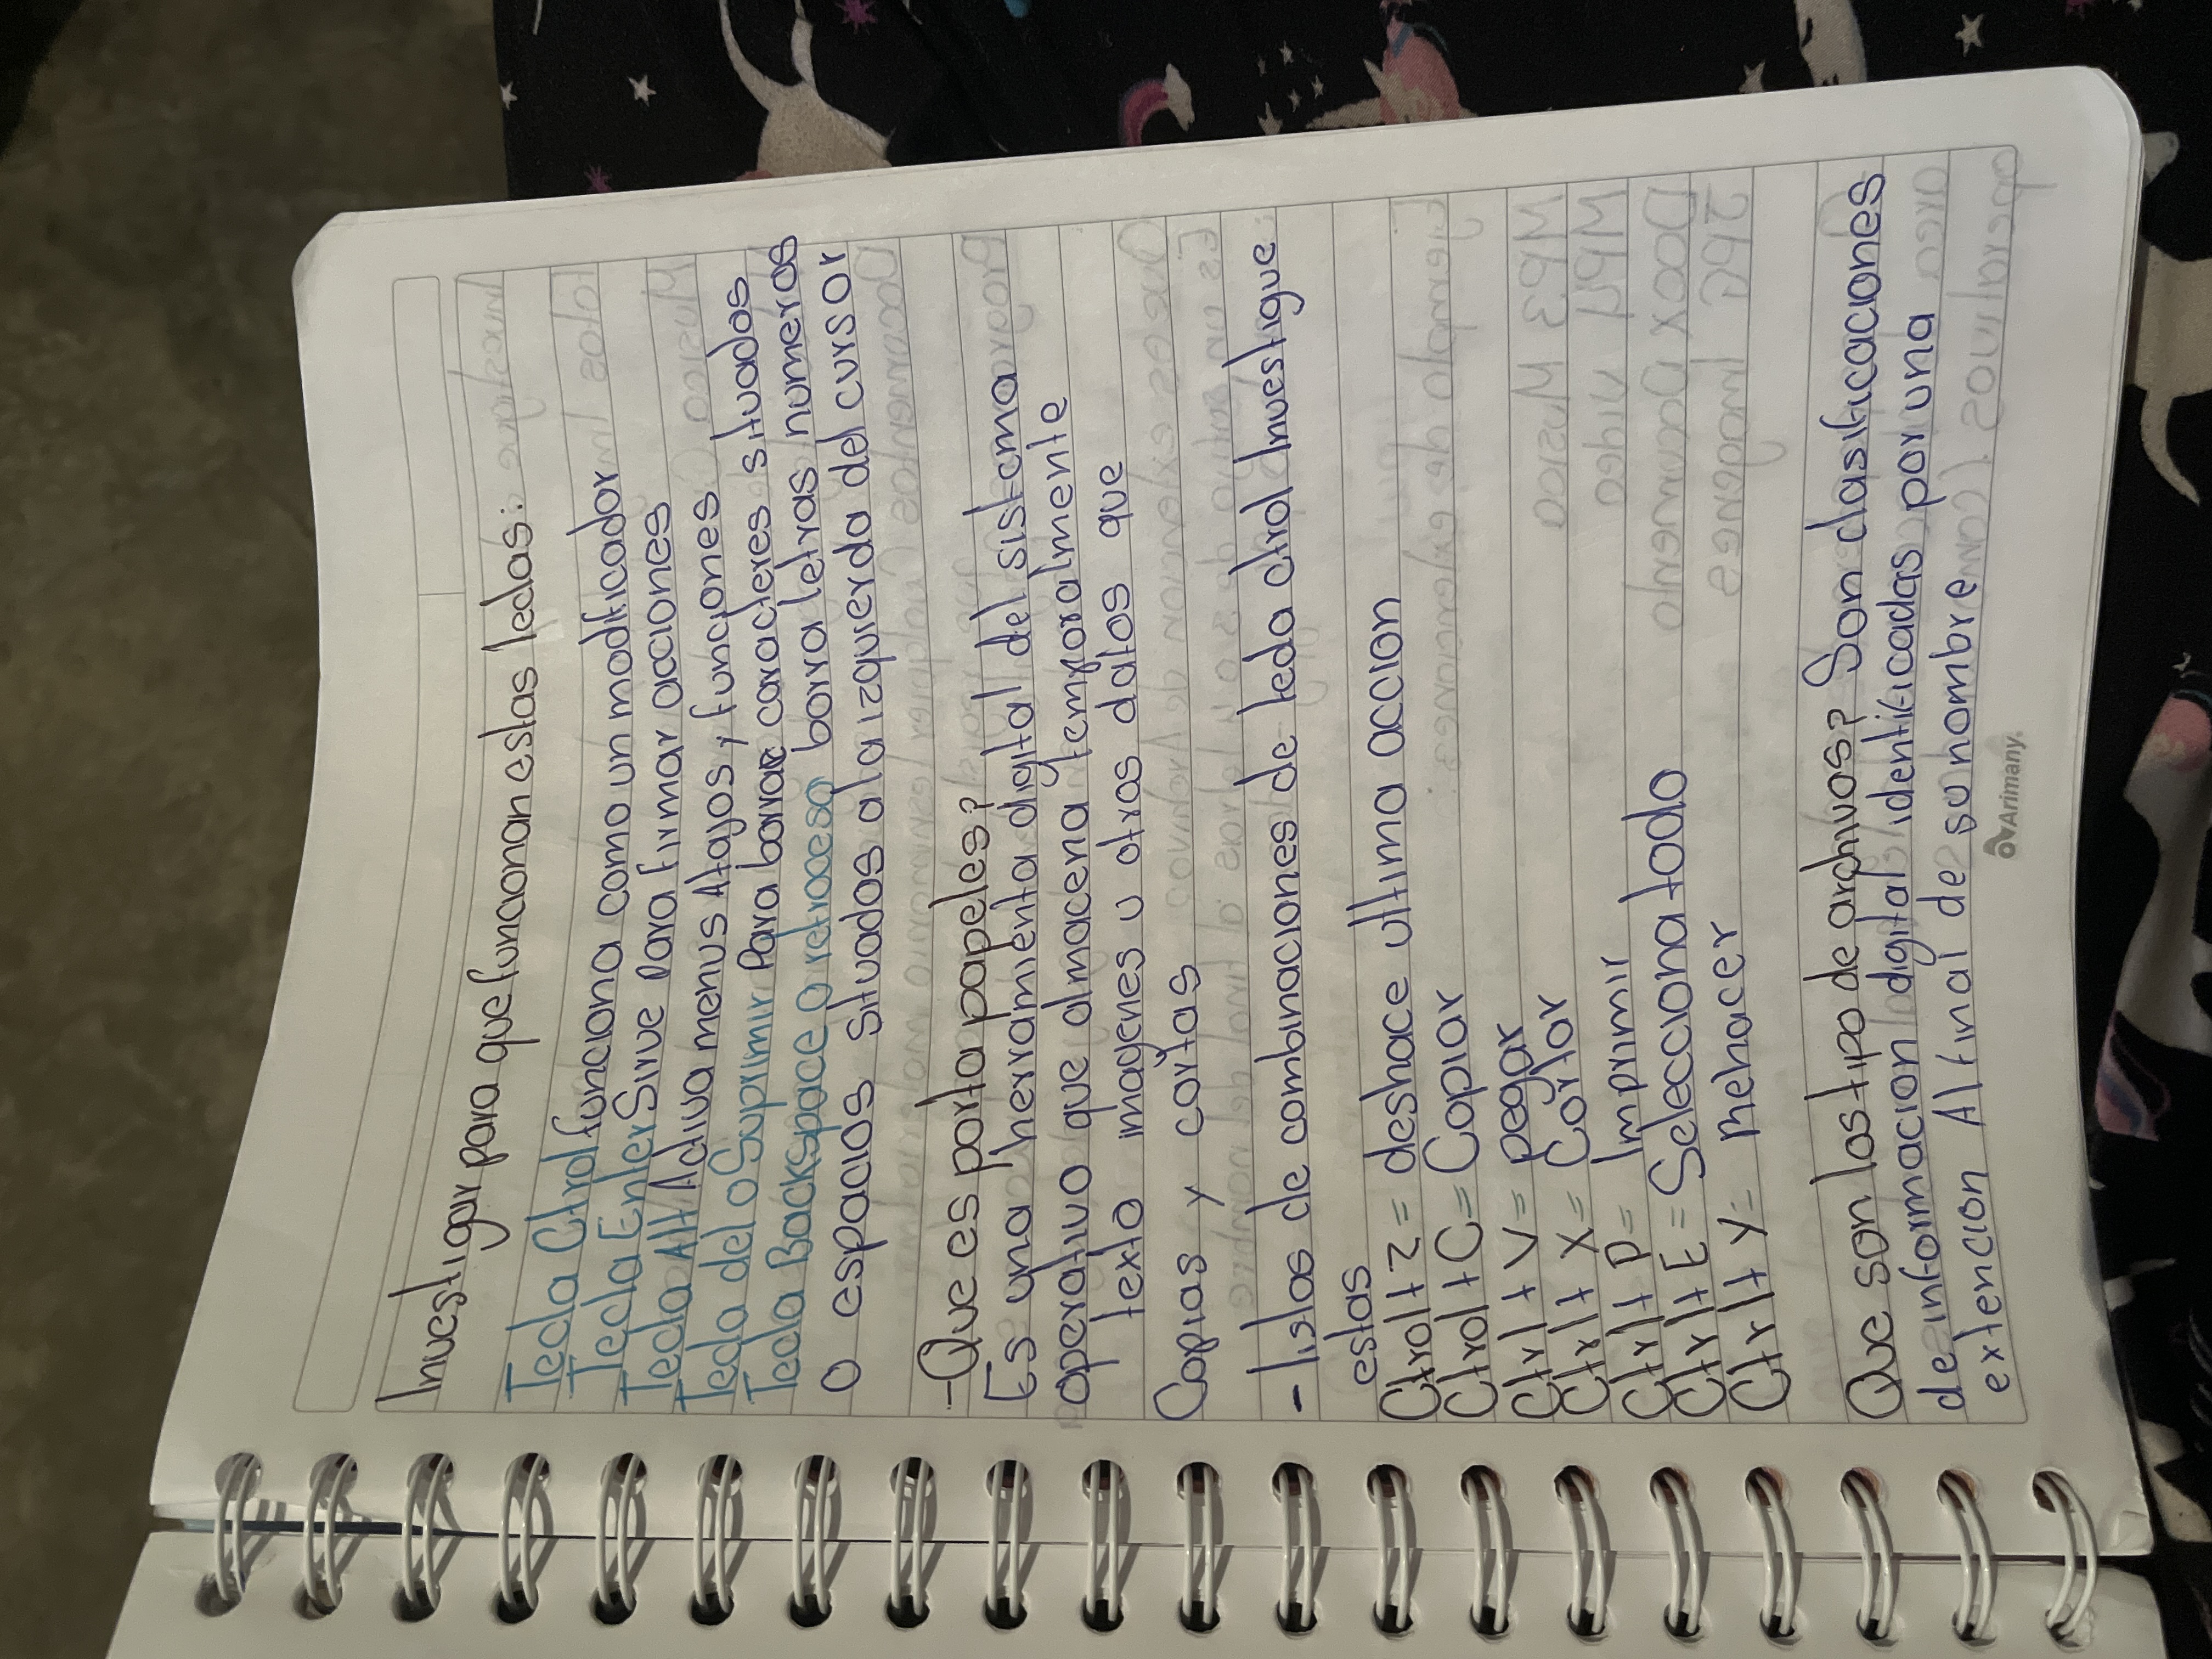 Investigar para que funcionan estas teclas:
Tecla Ctrol funciona como un modificador
Tecla Enter Sirve para firmar acciones
Tecla Alt Activa menus Atajos y funciones
Tecla del o Suprimir Para borrar caracteres situados
Tecla Backspace o retroceso borra letras numeros
o espacios situados a la izquierda del cursor
-Que es porta papeles?
Es una herramienta digital del sistema
operativo que almacena temporalmente
texto imagenes u otros datos que
Copias y cortas
- listas de combinaciones de tecla ctrol Investigue
estas
Ctrol + z = deshace ultima accion
Ctrol + C = Copiar
Ctrl + V = pegar
Ctrl + X = Cortar
Ctrl + P = Imprimir
Ctrl + E = Selecciona todo
Ctrl + Y = Rehacer
Que son los tipo de archivos? Son clasificaciones
de informacion digital identificadas por una
extencion Al final de su nombre
Arimany